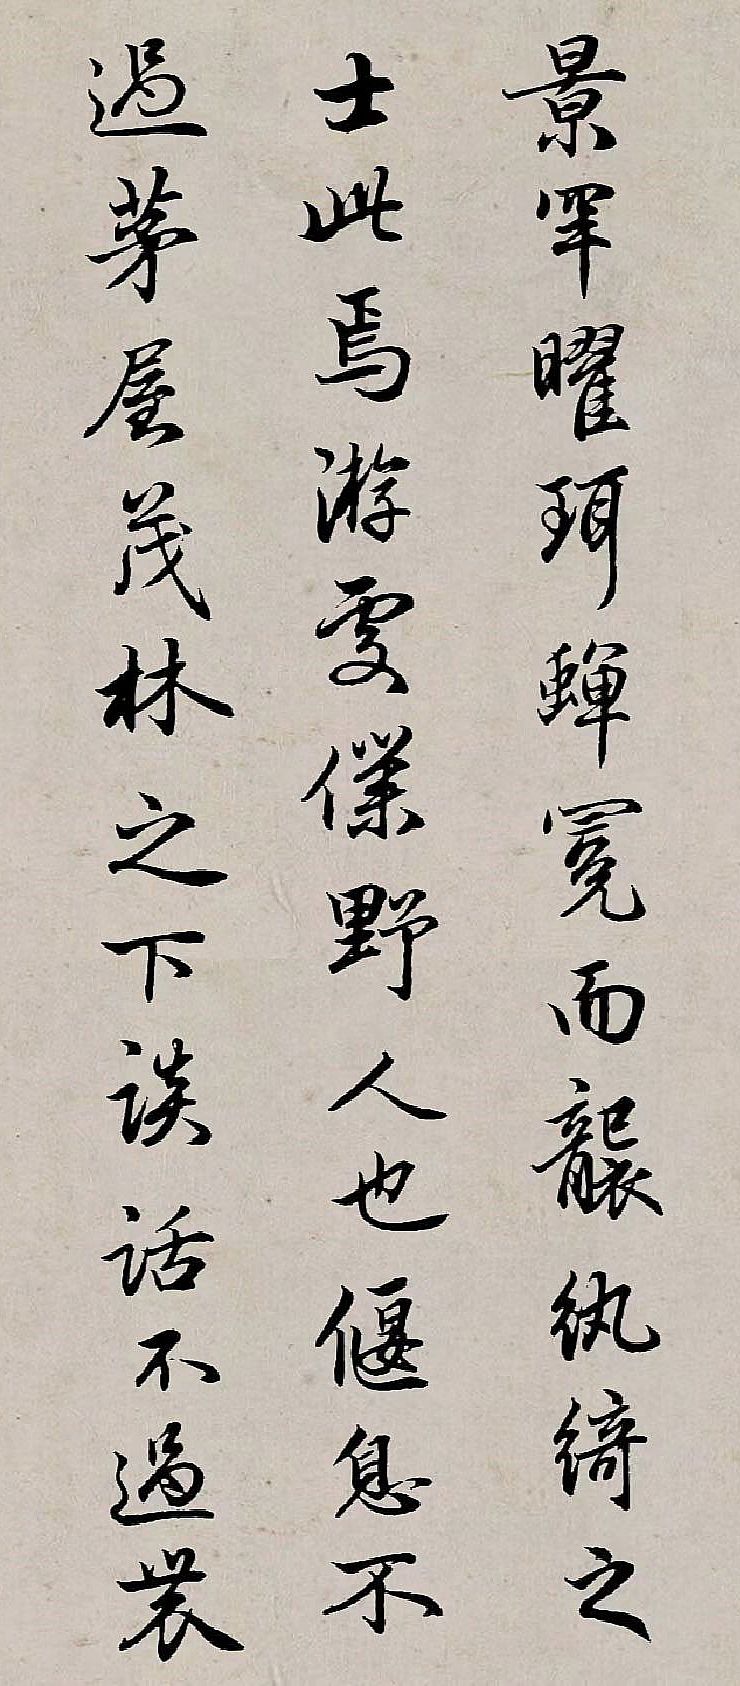 景罕曜珥蟬冕而襲紈綺之
士此焉游處僕野人也偃息不
過茅屋茂林之下談話不過農